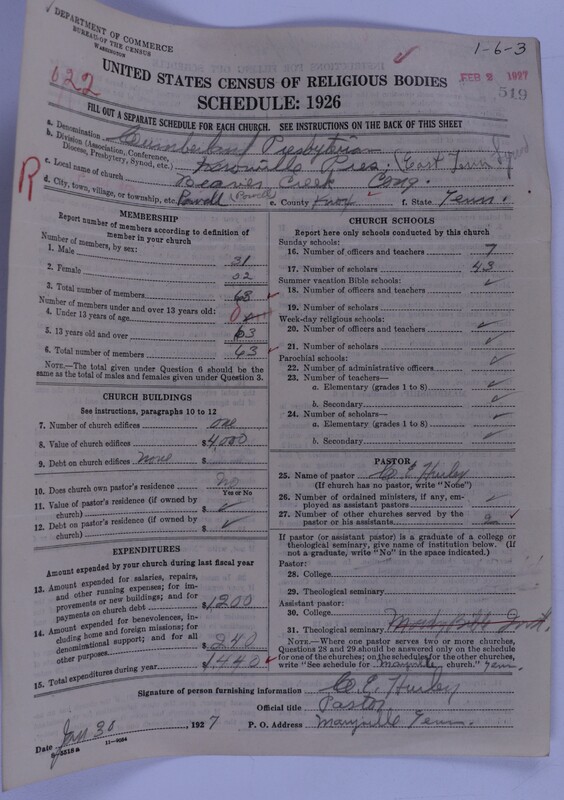 DEPARTMENT OF COMMERCE
BUREAU OF THE CENSUS
WASHINGTON
1-6-3
022
FEB 2 1927
519
UNITED STATES CENSUS OF RELIGIOUS BODIES
SCHEDULE: 1926
FILL OUT A SEPARATE SCHEDULE FOR EACH CHURCH. SEE INSTRUCTIONS ON THE BACK OF THIS SHEET
a. Denomination Cumberland Presbyterian
b. Division (Association, Conference, Diocese, Presbytery, Synod, etc.) Knoxville Pres. (East Tenn Synod
c. Local name of church Beaver Creek Cong.
R
d. City, town, village, or township, etc. Powell (Powell) e. County Knox f. State Tenn.
MEMBERSHIP
Report number of members according to definition of member in your church
Number of members, by sex:
1. Male 31
2. Female 32
3. Total number of members 63
Number of members under and over 13 years old:
4. Under 13 years of age 0
5. 13 years old and over 63
6. Total number of members 63
NOTE.—The total given under Question 6 should be the same as the total of males and females given under Question 3.
CHURCH BUILDINGS
See instructions, paragraphs 10 to 12
7. Number of church edifices one
8. Value of church edifices $4,000
9. Debt on church edifices none $
10. Does church own pastor's residence? no
Yes or No
11. Value of pastor's residence (if owned by church) $
12. Debt on pastor's residence (if owned by church) $
EXPENDITURES
Amount expended by your church during last fiscal year
13. Amount expended for salaries, repairs, and other running expenses; for improvements or new buildings; and for payments on church debt $1200
14. Amount expended for benevolences, including home and foreign missions; for denominational support; and for all other purposes 240
15. Total expenditures during year $1440
CHURCH SCHOOLS
Report here only schools conducted by this church
Sunday schools:
16. Number of officers and teachers 7
17. Number of scholars 43
Summer vacation Bible schools:
18. Number of officers and teachers
19. Number of scholars
Week-day religious schools:
20. Number of officers and teachers
21. Number of scholars
Parochial schools:
22. Number of administrative officers
23. Number of teachers—
a. Elementary (grades 1 to 8)
b. Secondary
24. Number of scholars—
a. Elementary (grades 1 to 8)
b. Secondary
PASTOR
25. Name of pastor Co. E. Hurley
(If church has no pastor, write "None")
26. Number of ordained ministers, if any, employed as assistant pastors
27. Number of other churches served by the pastor or his assistants 2
If pastor (or assistant pastor) is a graduate of a college or theological seminary, give name of institution below. (If not a graduate, write "No" in the space indicated.)
Pastor:
28. College
29. Theological seminary
Assistant pastor:
30. College
31. Theological seminary Moody Bible Inst.
NOTE.—Where one pastor serves two or more churches, Questions 28 and 29 should be answered only on the schedule for one of the churches; on the schedules for the other churches, write "See schedule for Maryville church." Tenn.
Signature of person furnishing information Co. E. Hurley
Official title Pastor
Date Jan 30, 1927 P. O. Address Maryville Tenn.
6-3518a 11-9064